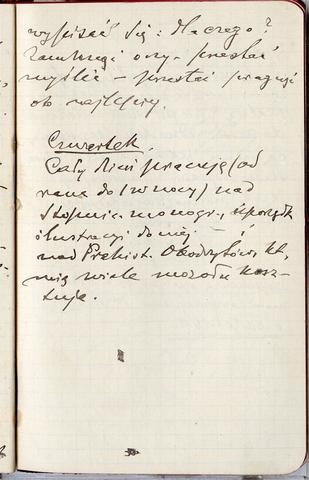 wyspisać się: Dlaczego?
Zamknąć oczy – przestać
myśleć – przestać pragnąć
ot najlepiej.
Czwartek.
Cały dzień pracuję (od
rana do 1 w nocy) nad
Stopnic. monogr., uporządk
ilustracyi do niej – i
nad Prehist. Obodrytów, kt.
mię wiele mozołu kosz-
tuje.